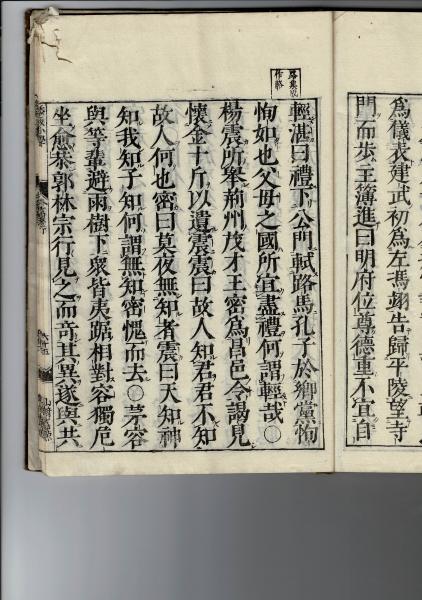 為儀表建武初為左馮翊告歸平陵望寺
門而步主簿進曰明府位尊德重不宜自
輕湛曰禮下公門軾路馬孔子於鄉黨恂
恂如也父母之國所宜盡禮何謂輕哉○
楊震所舉荊州茂才王密為昌邑令謁見
懷金十斤以遺震震曰故人知君君不知
故人何也密曰莫夜無知者震曰天知神
知我知子知何謂無知密愧而去○茅容
與等輩避雨樹下衆皆夷踞相對容獨危
坐愈恭郭林宗行見之而奇其異遂與共